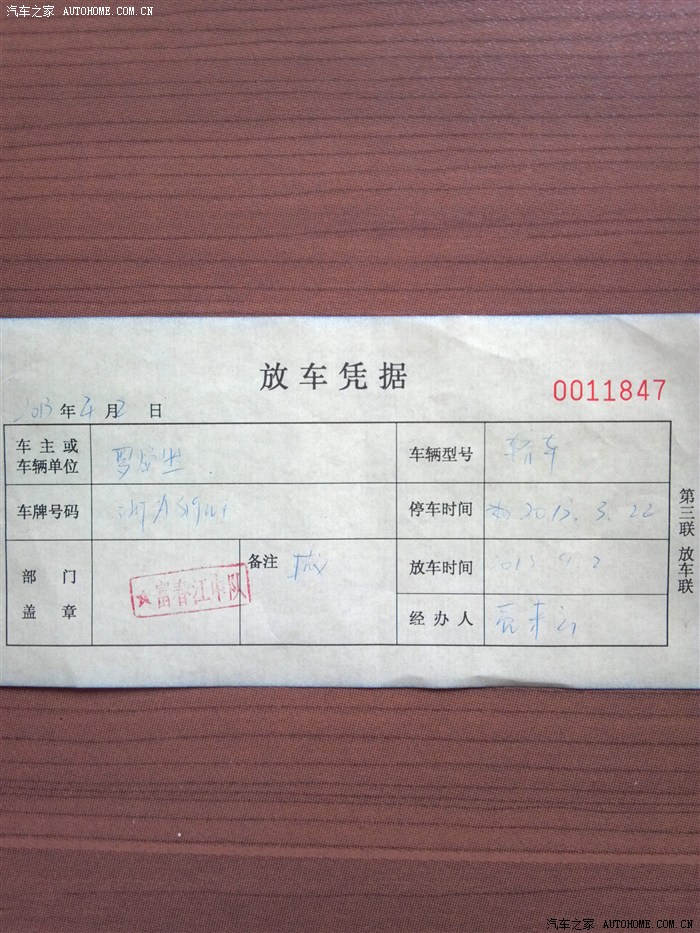 汽车之家 AUTOHOME.COM.CN
放车凭据
0011847
2013 年 月 2 日
车主或
车辆单位
车辆型号 轿车
车牌号码
停车时间 2013.3.22
部门
盖章
★富春江中队
备注
放车时间 2013 9.2
经办人
第三联 放车联
汽车之家 AUTOHOME.COM.CN